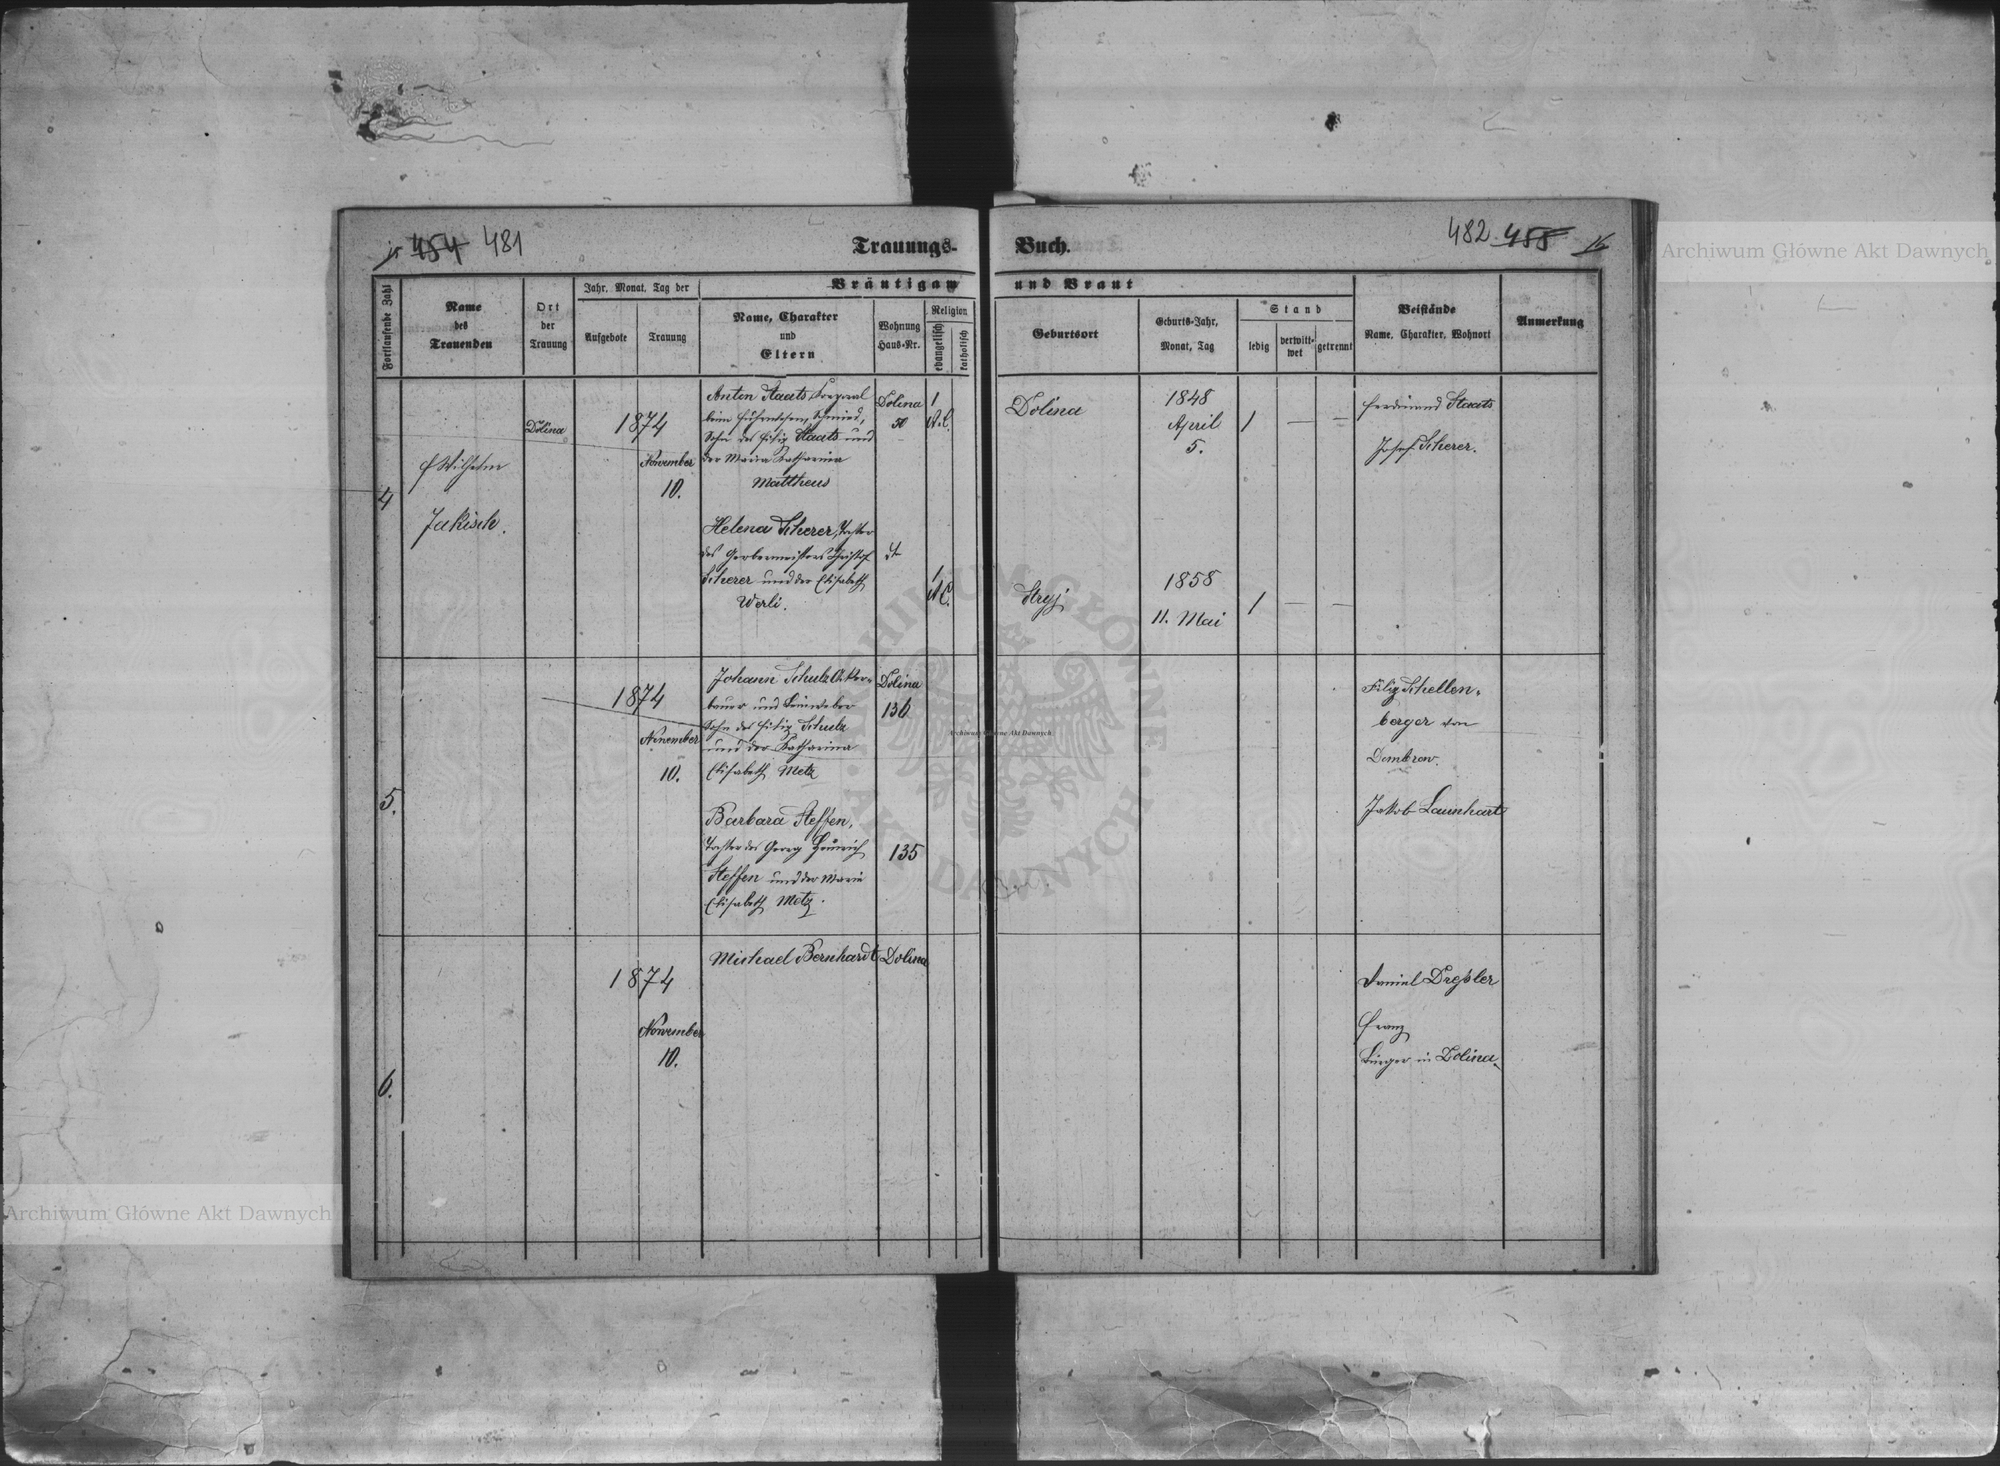 15 454 481
Trauungs-Buch.
482 455 16
Fortlaufende Zahl
Name
des
Trauenden
Ort
der
Trauung
Jahr, Monat, Tag der
Aufgebote
Trauung
Bräutigam und Braut
Name, Charakter
und
Eltern
Wohnung
Haus-Nr.
Religion
evangelisch
katholisch
Geburtsort
Geburts-Jahr,
Monat, Tag
Stand
ledig
verwitt-
wet
getrennt
Beistände
Name, Charakter, Wohnort
Anmerkung
4
Wilhelm
Jakisch.
Dolina
1874
November
10.
Anton Staats, Korporal
beim Schmied,
Sohn des Filip Staats und
der Maria Katharina
Mattheus
Dolina
50
1
A.C.
Dolina
1848
April
5.
1 — —
Ferdinand Staats
Josef Scherer.
Helena Scherer, Tochter
des Gerbermeisters Christof
Scherer und der Elisabeth
Werli.
1
A.C.
Stryj
1858
11. Mai
1 — —
5.
1874
November
10.
Johann Schulz Acker-
bauer und Leinweber
Sohn des Filip Schulz
und der Katharina
Elisabeth Metz
Dolina
136
Filip Schellen-
berger von
Dombrow.
Jakob Launhart
Barbara Steffen,
Tochter des Georg Heinrich
Steffen und der Maria
Elisabeth Metz.
135
6.
1874
November
10.
Michael Bernhardt
Dolina
Daniel Dreßler
Franz
Bürger in Dolina.
Archiwum Główne Akt Dawnych
Archiwum Główne Akt Dawnych
Archiwum Główne Akt Dawnych
ARCHIWUM GŁÓWNE · AKT DAWNYCH ·